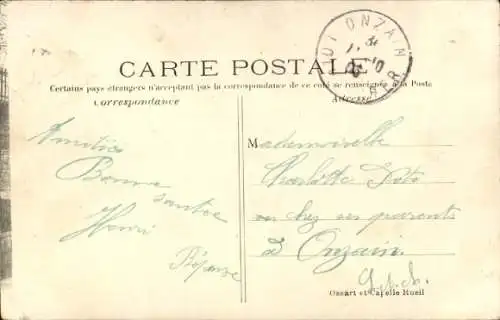 ONZAIN
CARTE POSTALE
Certains pays étrangers n'acceptent pas la correspondance de ce coté se renseigner à la Poste
Correspondance
Adresse
Amitiés
Bonne
santée
Henri
Mademoiselle
Charlotte
ou chez ses parents
à Onzain.
Ossart et Capelle Rueil